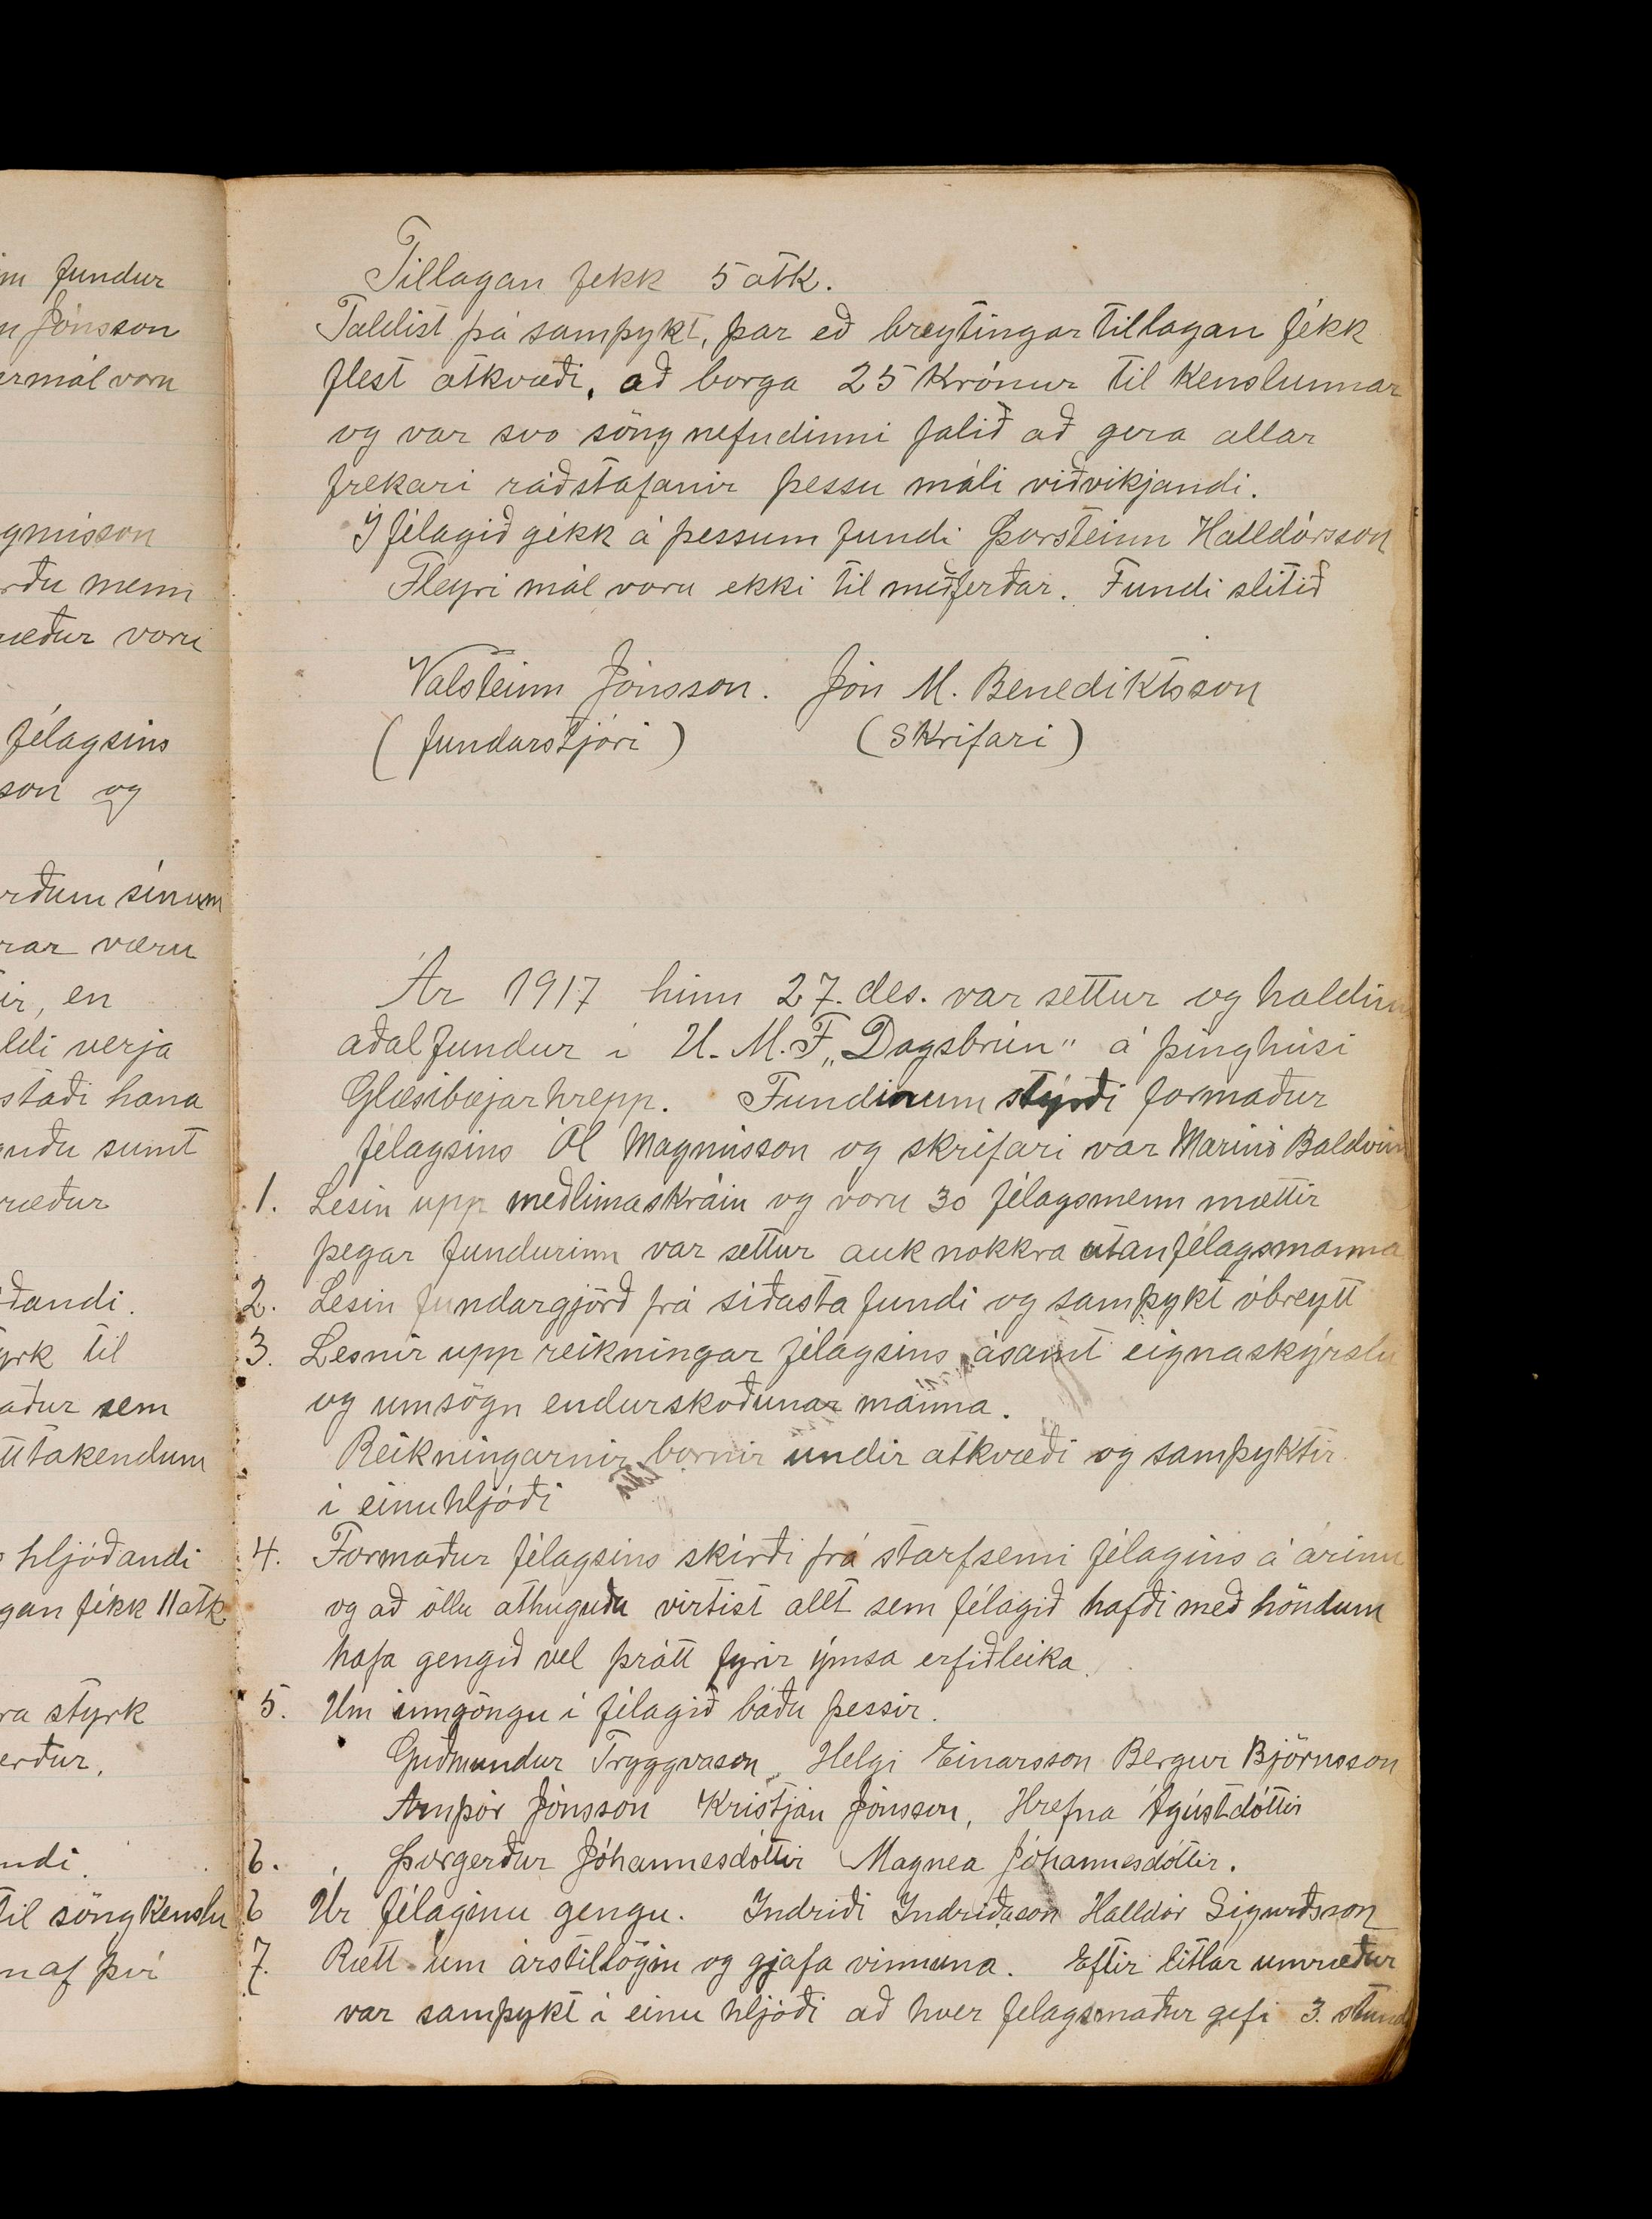 m fundur
n Jónsson
ermál voru
gnússon
rðu menn
ræður voru
félagsins
son og
rðum sínum
rar væru
ir, en
ldi verja
staði hana
guðu sumt
ræður
ðandi.
yrk til
aður sem
ttakendum
hljóðandi
gan fékk 11 atk
ra styrk
erður,
ndi.
til söngkenslu
naf því
Tillagan fekk 5 atk.
Taldist þá samþykt, þar eð breytingar tillagan fékk
flest atkvæði, að borga 25 Krónur til kenslunnar
og var svo söngnefndinni falið að gera allar
frekari ráðstafanir þessu máli viðvikjandi.
Í félagið gékk á þessum fundi Þorsteinn Halldórsson
Fleyri mál voru ekki til meðferðar. Fundi slitið
Valsteinn Jónsson. Jón M. Benediktsson
(fundarstjóri) (Skrifari)
Ár 1917 hinn 27. des. var settur og haldinn
aðalfundur í U. M. F. „Dagsbrún" á þinghúsi
Glæsibæjarhrepp. Fundinum stýrði formaður
félagsins Ól Magnússon og skrifari var Marinó Baldvin
1. Lesin upp meðlimaskráin og voru 30 félagsmenn mættir
þegar fundurinn var settur auk nokkra utanfélagsmanna
2. Lesin fundargjörð frá síðasta fundi og samþykt óbreytt
3. Lesnir upp reikningar félagsins ásamt eignaskýrslu
og umsögn endurskoðunar manna.
Reikningarnir bornir undir atkvæði og samþyktir
í einuhljóði
4. Formaður félagsins skírði frá starfsemi félagins á árinu
og að öllu athuguðu virtist allt sem félagið hafði með höndum
hafa gengið vel þrátt fyrir ýmsa erfiðleika.
5. Um inngöngu í félagið báðu þessir.
Guðmundur Tryggvason, Helgi Einarsson Bergur Björnsson
Arnþór Jónsson Kristján Jónsson, Hrefna Ágústdóttir
6. Þorgerður Jóhannesdóttir Magnea Jóhannesdóttir.
6 Úr félaginu gengu. Indriði Indriðason Halldór Sigurðsson
7. Rætt um árstillögin og gjafa vinnuna. Eftir litlar umræður
var samþykt í einu hljóði að hver felagsmaður gefi 3. stund